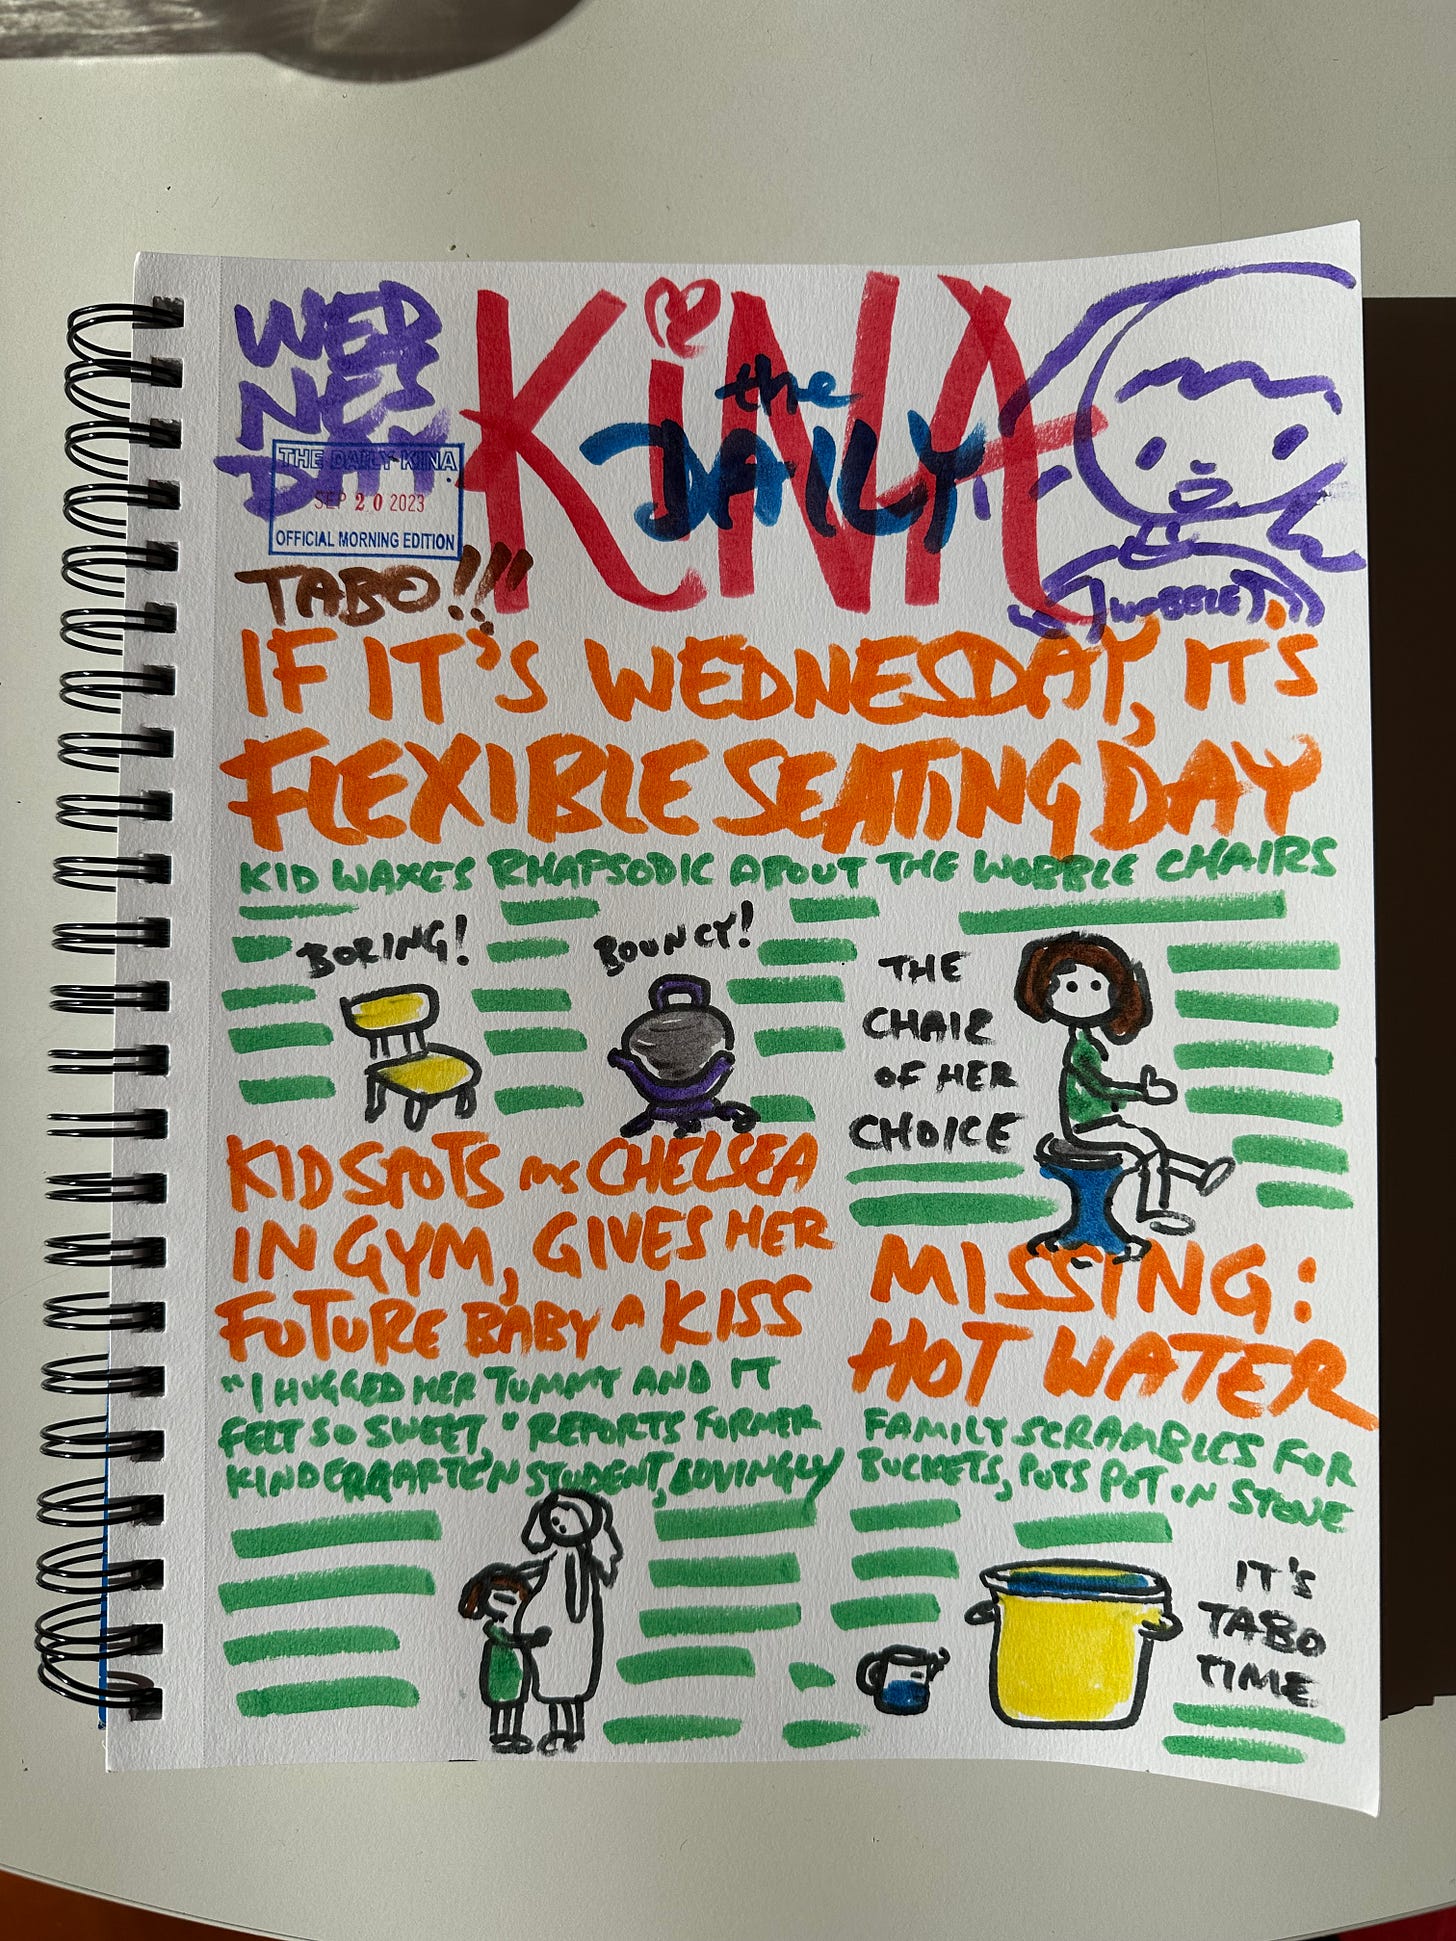 WED
NES
DAY.
THE DAILY KINA
SEP 20 2023
OFFICIAL MORNING EDITION
KiNA
the
DAILY
WOBBLE
TABO!!!
IF IT'S WEDNESDAY, IT'S
FLEXIBLE SEATING DAY
KID WAXES RHAPSODIC ABOUT THE WOBBLE CHAIRS
BORING!
BOUNCY!
THE
CHAIR
OF HER
CHOICE
KID SPOTS MS CHELSEA
IN GYM, GIVES HER
FUTURE BABY A KISS
"I HUGGED HER TUMMY AND IT
FELT SO SWEET," REPORTS FORMER
KINDERGARTEN STUDENT, LOVINGLY
MISSING:
HOT WATER
FAMILY SCRAMBLES FOR
BUCKETS, PUTS POT IN STOVE
IT'S
TABO
TIME